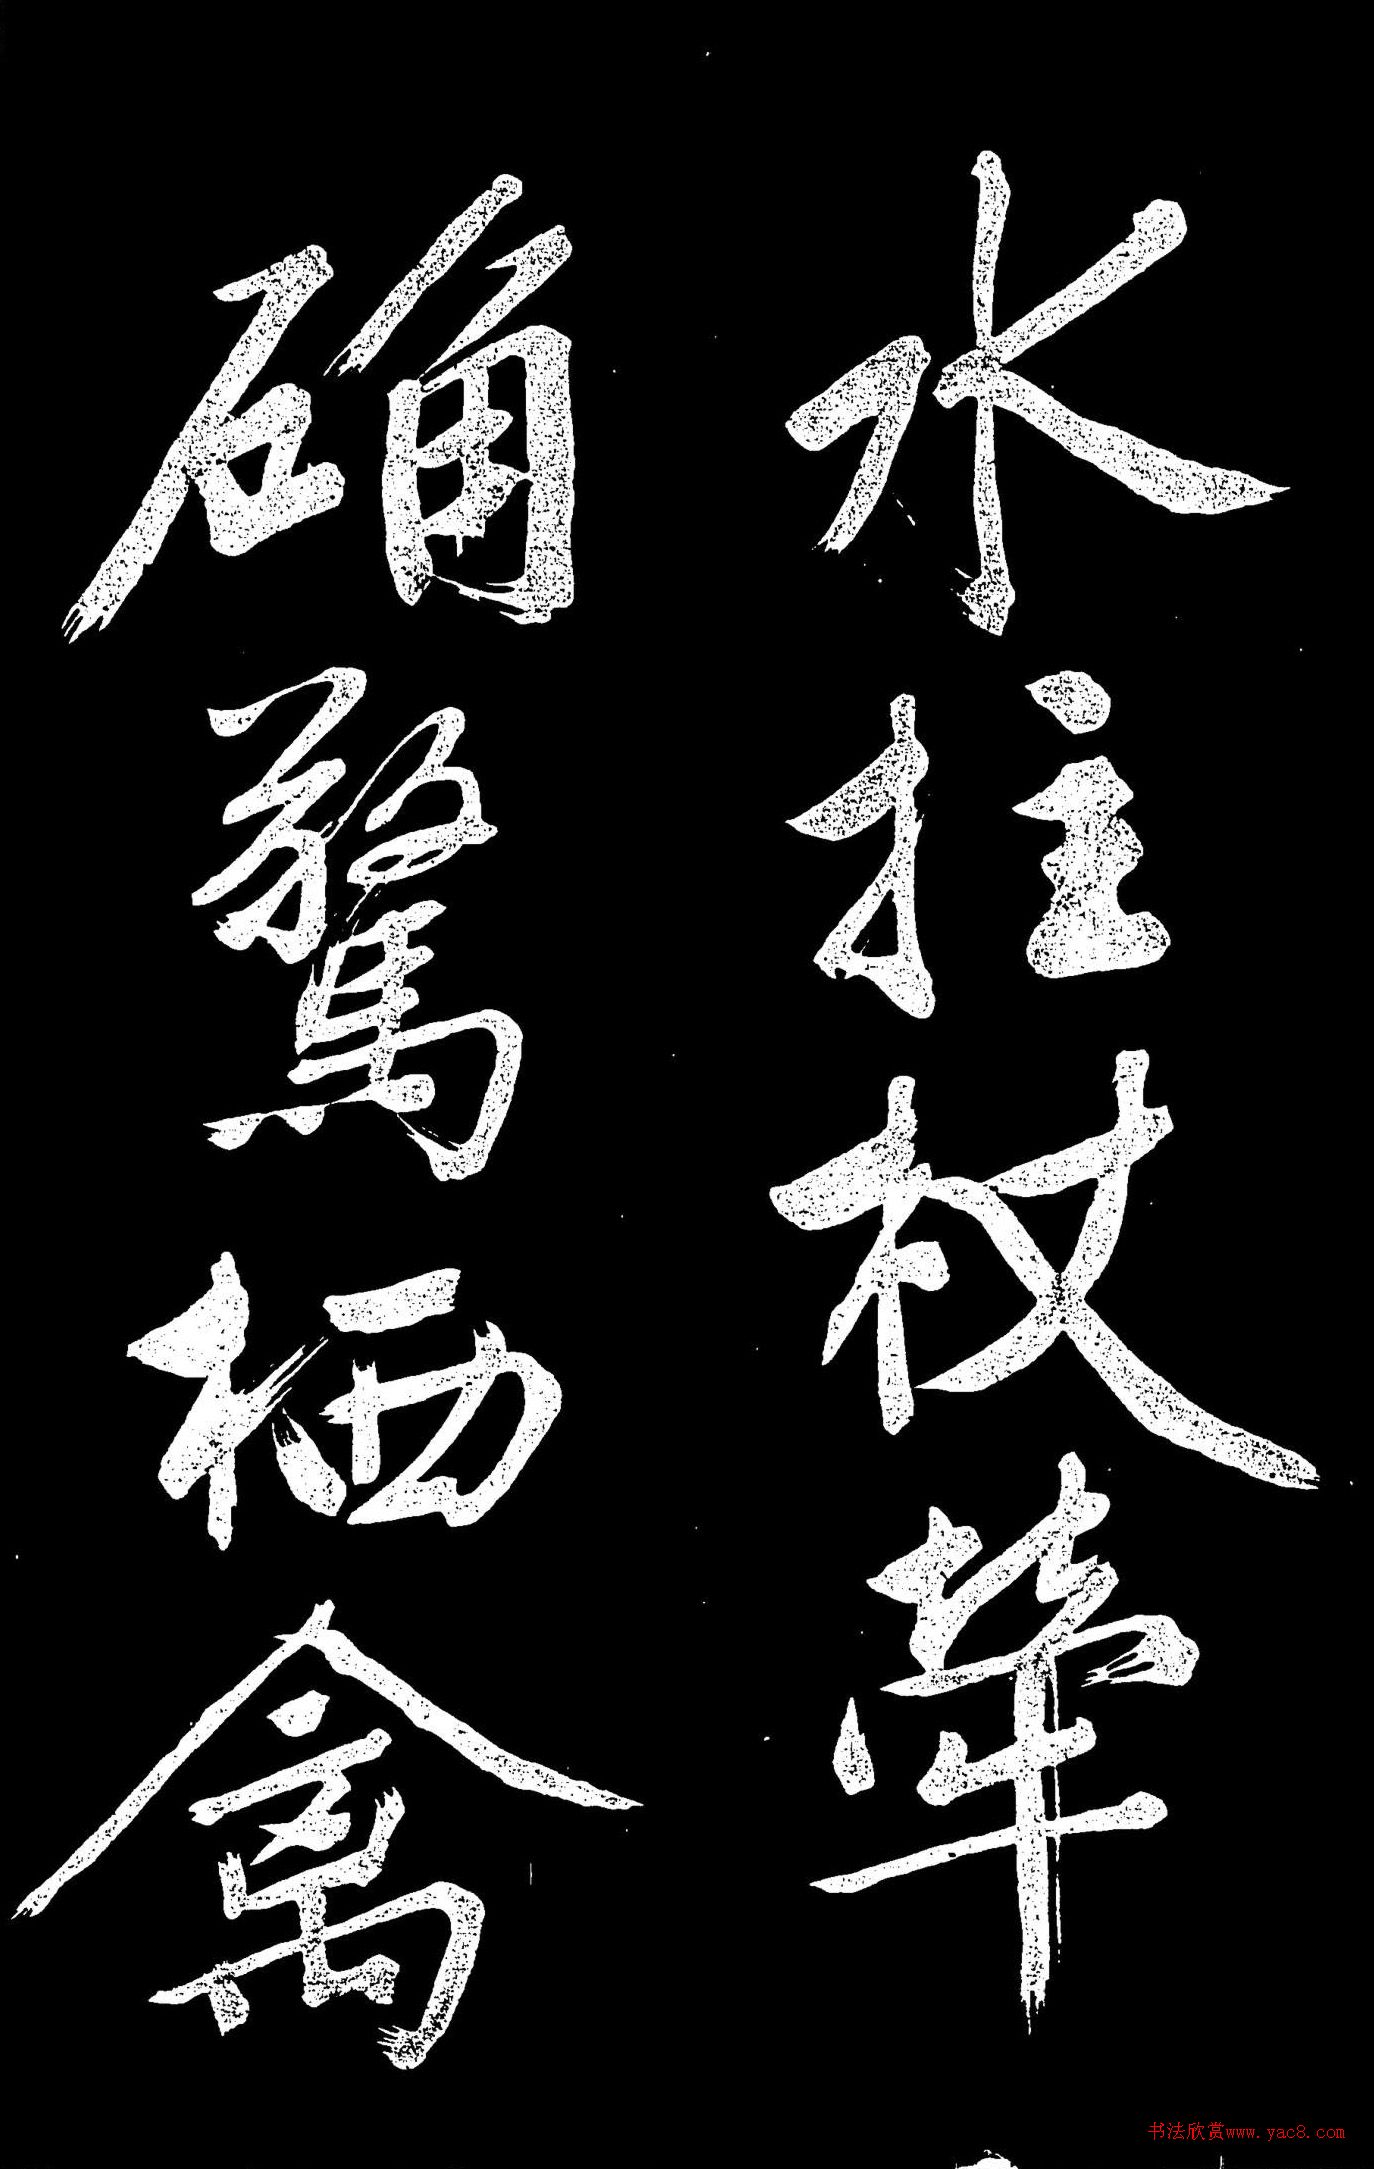 水拄杖犖
确驚栖禽
书法欣赏www.yac8.com